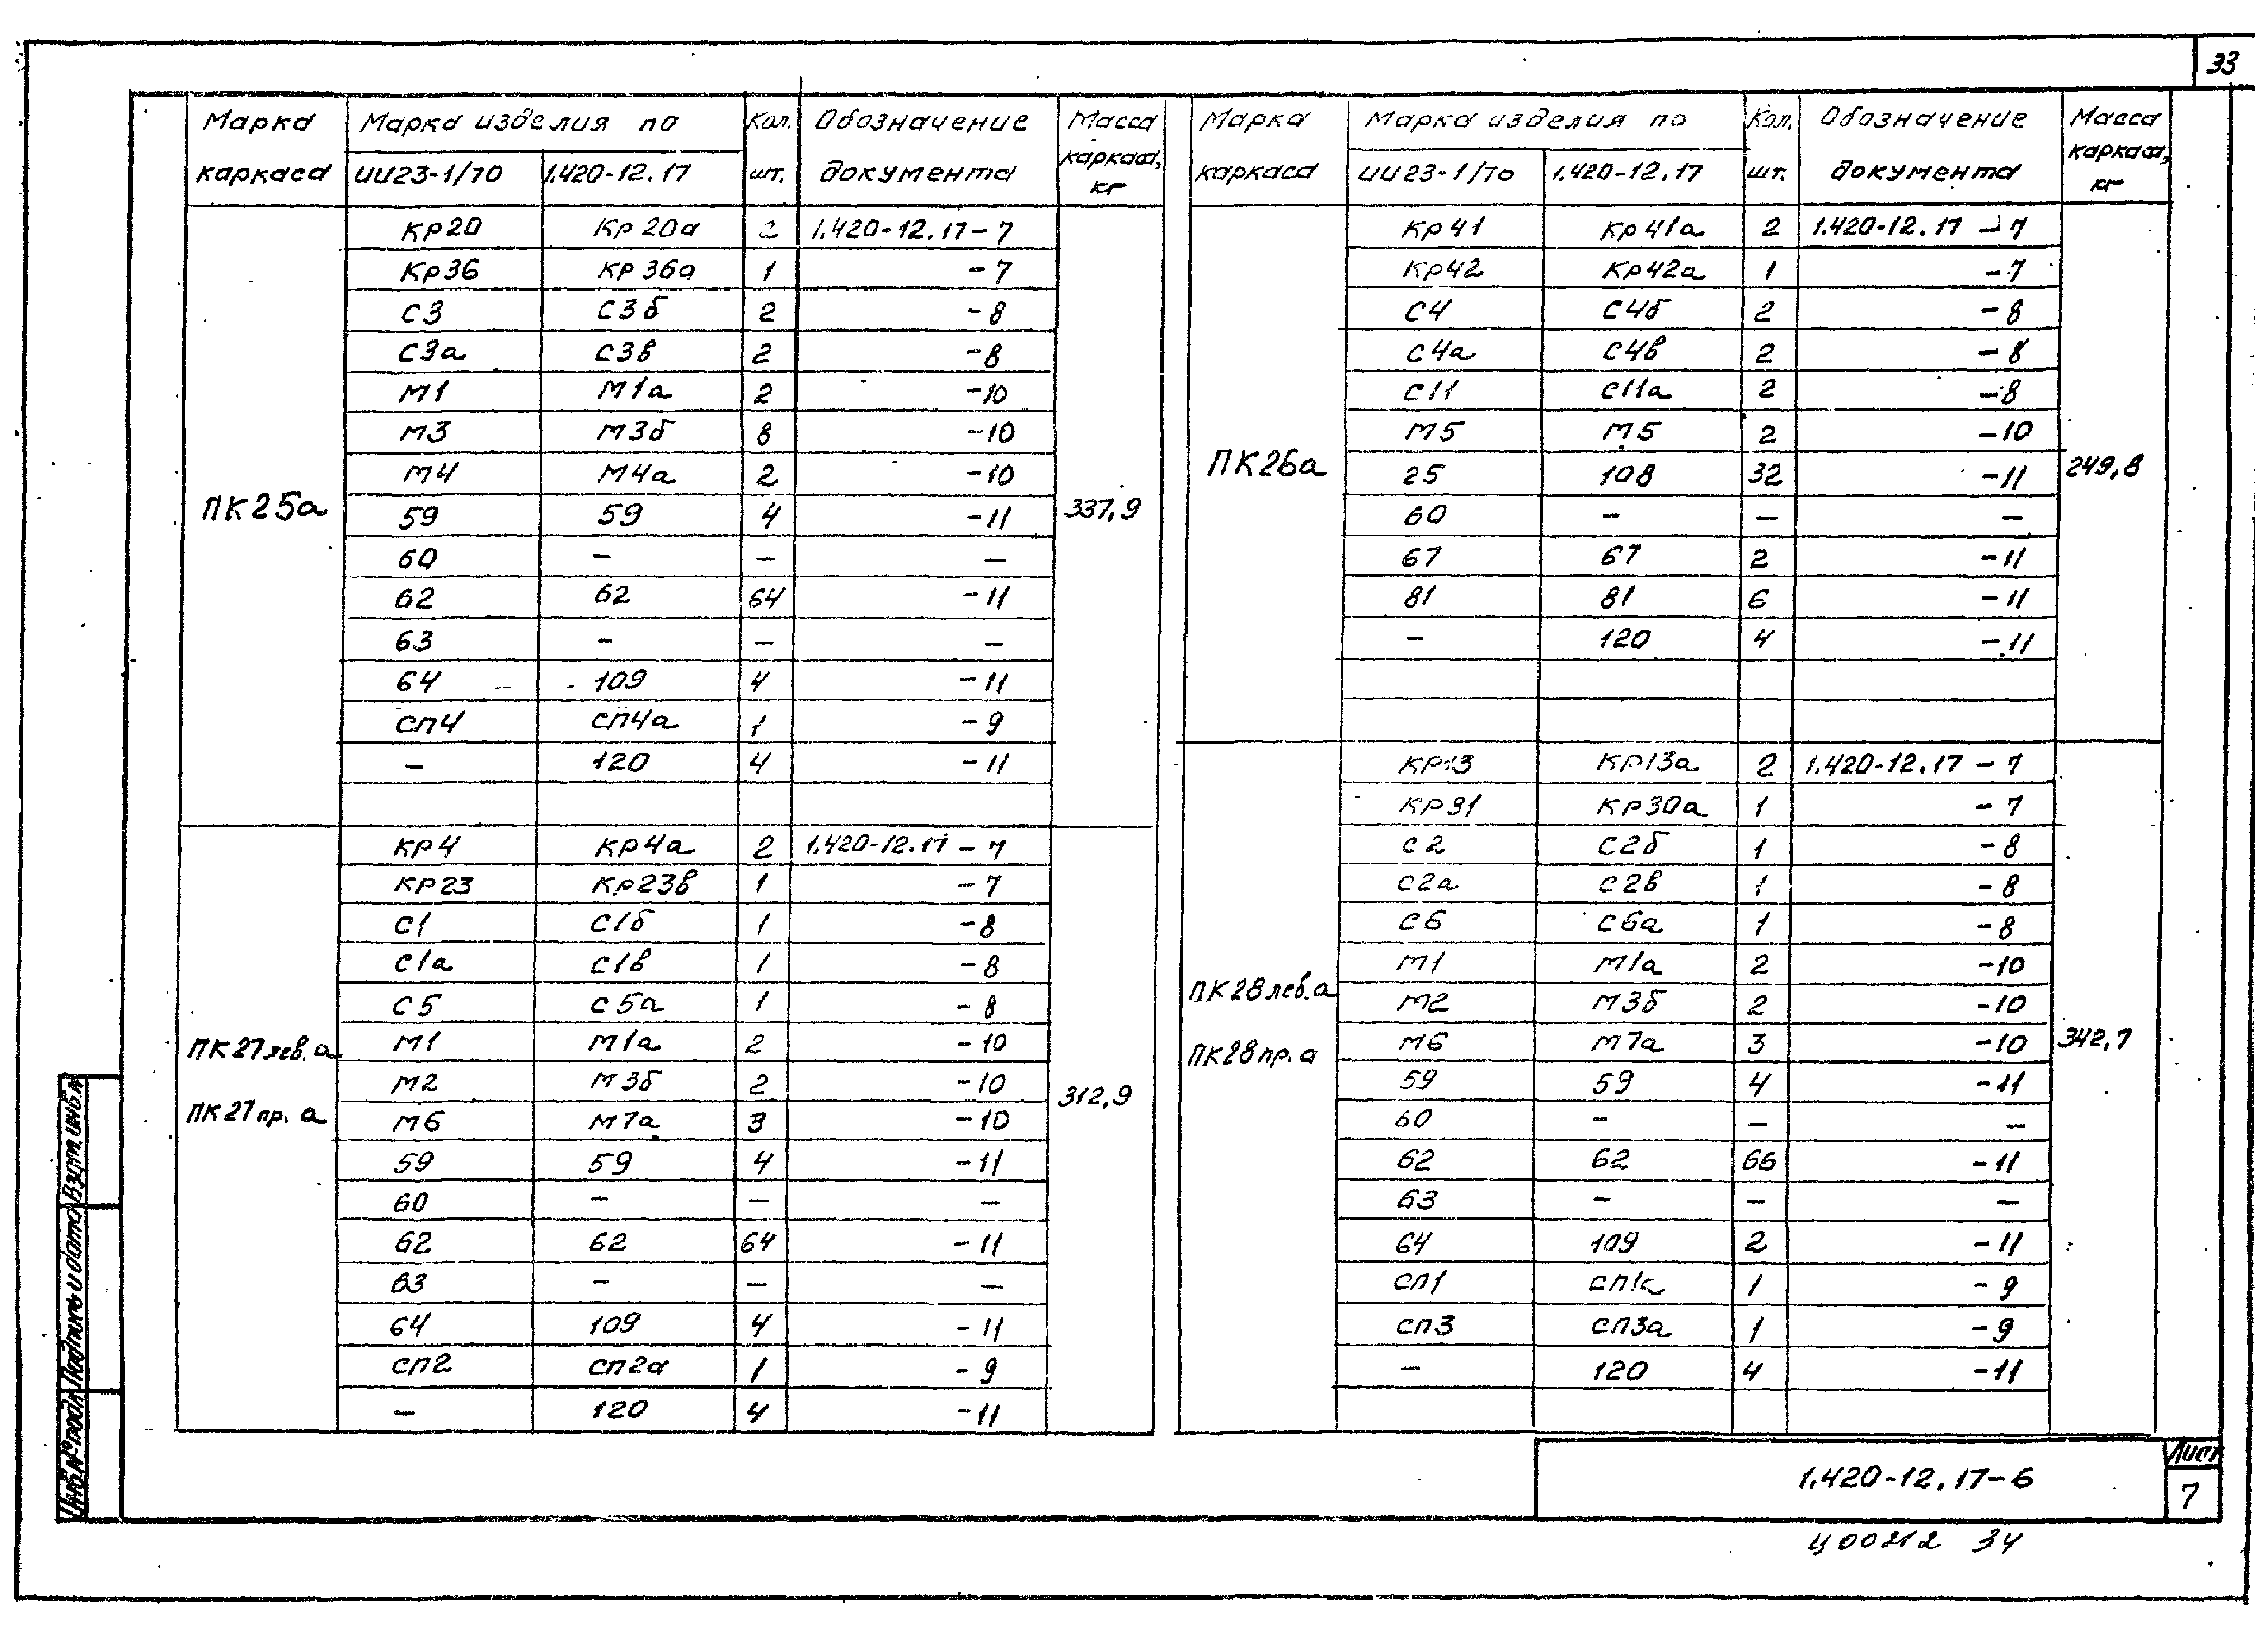 33
Марка каркаса | Марка изделия по | Кол. шт. | Обозначение документа | Масса каркаса, кг
ИИ23-1/70 | 1.420-12.17
ПК25а | 337,9
Кр20 | Кр20а | 2 | 1.420-12.17-7
Кр36 | Кр36а | 1 | -7
С3 | С3б | 2 | -8
С3а | С3в | 2 | -8
М1 | М1а | 2 | -10
М3 | М3б | 8 | -10
М4 | М4а | 2 | -10
59 | 59 | 4 | -11
60 | – | – | –
62 | 62 | 64 | -11
63 | – | – | –
64 | 109 | 4 | -11
СП4 | СП4а | 1 | -9
– | 120 | 4 | -11
ПК27лев.а
ПК27пр.а | 312,9
КР4 | КР4а | 2 | 1.420-12.17-7
КР23 | Кр23в | 1 | -7
С1 | С1б | 1 | -8
С1а | С1в | 1 | -8
С5 | С5а | 1 | -8
М1 | М1а | 2 | -10
М2 | М3б | 2 | -10
М6 | М7а | 3 | -10
59 | 59 | 4 | -11
60 | – | – | –
62 | 62 | 64 | -11
63 | – | – | –
64 | 109 | 4 | -11
СП2 | СП2а | 1 | -9
– | 120 | 4 | -11
Марка каркаса | Марка изделия по | Кол. шт. | Обозначение документа | Масса каркаса, кг
ИИ23-1/70 | 1.420-12.17
ПК26а | 249,8
Кр41 | Кр41а | 2 | 1.420-12.17-7
Кр42 | Кр42а | 1 | -7
С4 | С4б | 2 | -8
С4а | С4в | 2 | -8
С11 | С11а | 2 | -8
М5 | М5 | 2 | -10
25 | 108 | 32 | -11
60 | – | – | –
67 | 67 | 2 | -11
81 | 81 | 6 | -11
– | 120 | 4 | -11
ПК28лев.а
ПК28пр.а | 342,7
КР13 | КР13а | 2 | 1.420-12.17-7
КР31 | КР30а | 1 | -7
С2 | С2б | 1 | -8
С2а | С2в | 1 | -8
С6 | С6а | 1 | -8
М1 | М1а | 2 | -10
М2 | М3б | 2 | -10
М6 | М7а | 3 | -10
59 | 59 | 4 | -11
60 | – | – | –
62 | 62 | 66 | -11
63 | – | – | –
64 | 109 | 2 | -11
СП1 | СП1а | 1 | -9
СП3 | СП3а | 1 | -9
– | 120 | 4 | -11
Инв.№ подл. Подпись и дата Взам.инв.№
1.420-12.17-6
Лист
7
Ц00212 34